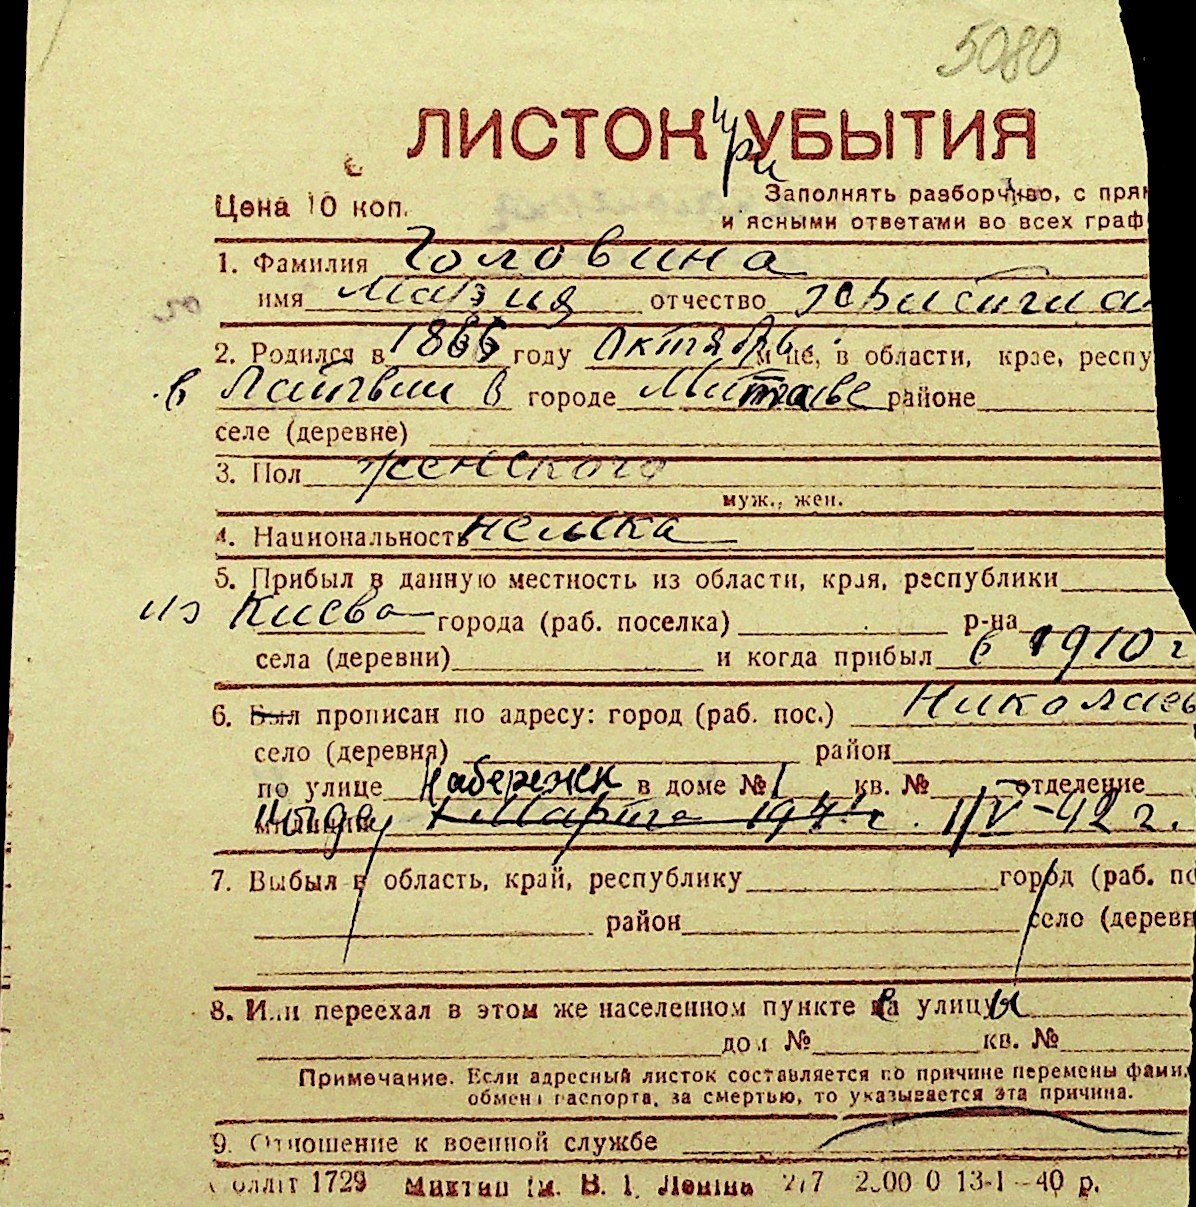 5080
ЛИСТОК УБЫТИЯ
при
Цена 10 коп.
Заполнять разборчиво, с прям
и ясными ответами во всех граф
1. Фамилия Головина
имя Мария отчество Христиан
2. Родился в 1866 году Октябрь м-це, в области, крае, респу
в Латвии в городе Митаве районе
селе (деревне)
3. Пол женского
муж., жен.
4. Национальность немка
5. Прибыл в данную местность из области, края, республики
из Киева города (раб. поселка) р-на
села (деревни) и когда прибыл в 1910 г
6. Был прописан по адресу: город (раб. пос.) Николаев
село (деревня) район
по улице Набережн в доме № 1 кв. № отделение
милиции 1 Марта 1941 г. 1/IV-42 г.
7. Выбыл в область, край, республику город (раб. по
район село (деревн
8. Или переехал в этом же населенном пункте с улицы
дом № кв. №
Примечание. Если адресный листок составляется по причине перемены фамил
обмена паспорта, за смертью, то указывается эта причина.
9. Отношение к военной службе
оллiт 1729 Миктип iм. В. I. Ленiна 277 2000 0 13-1-40 р.